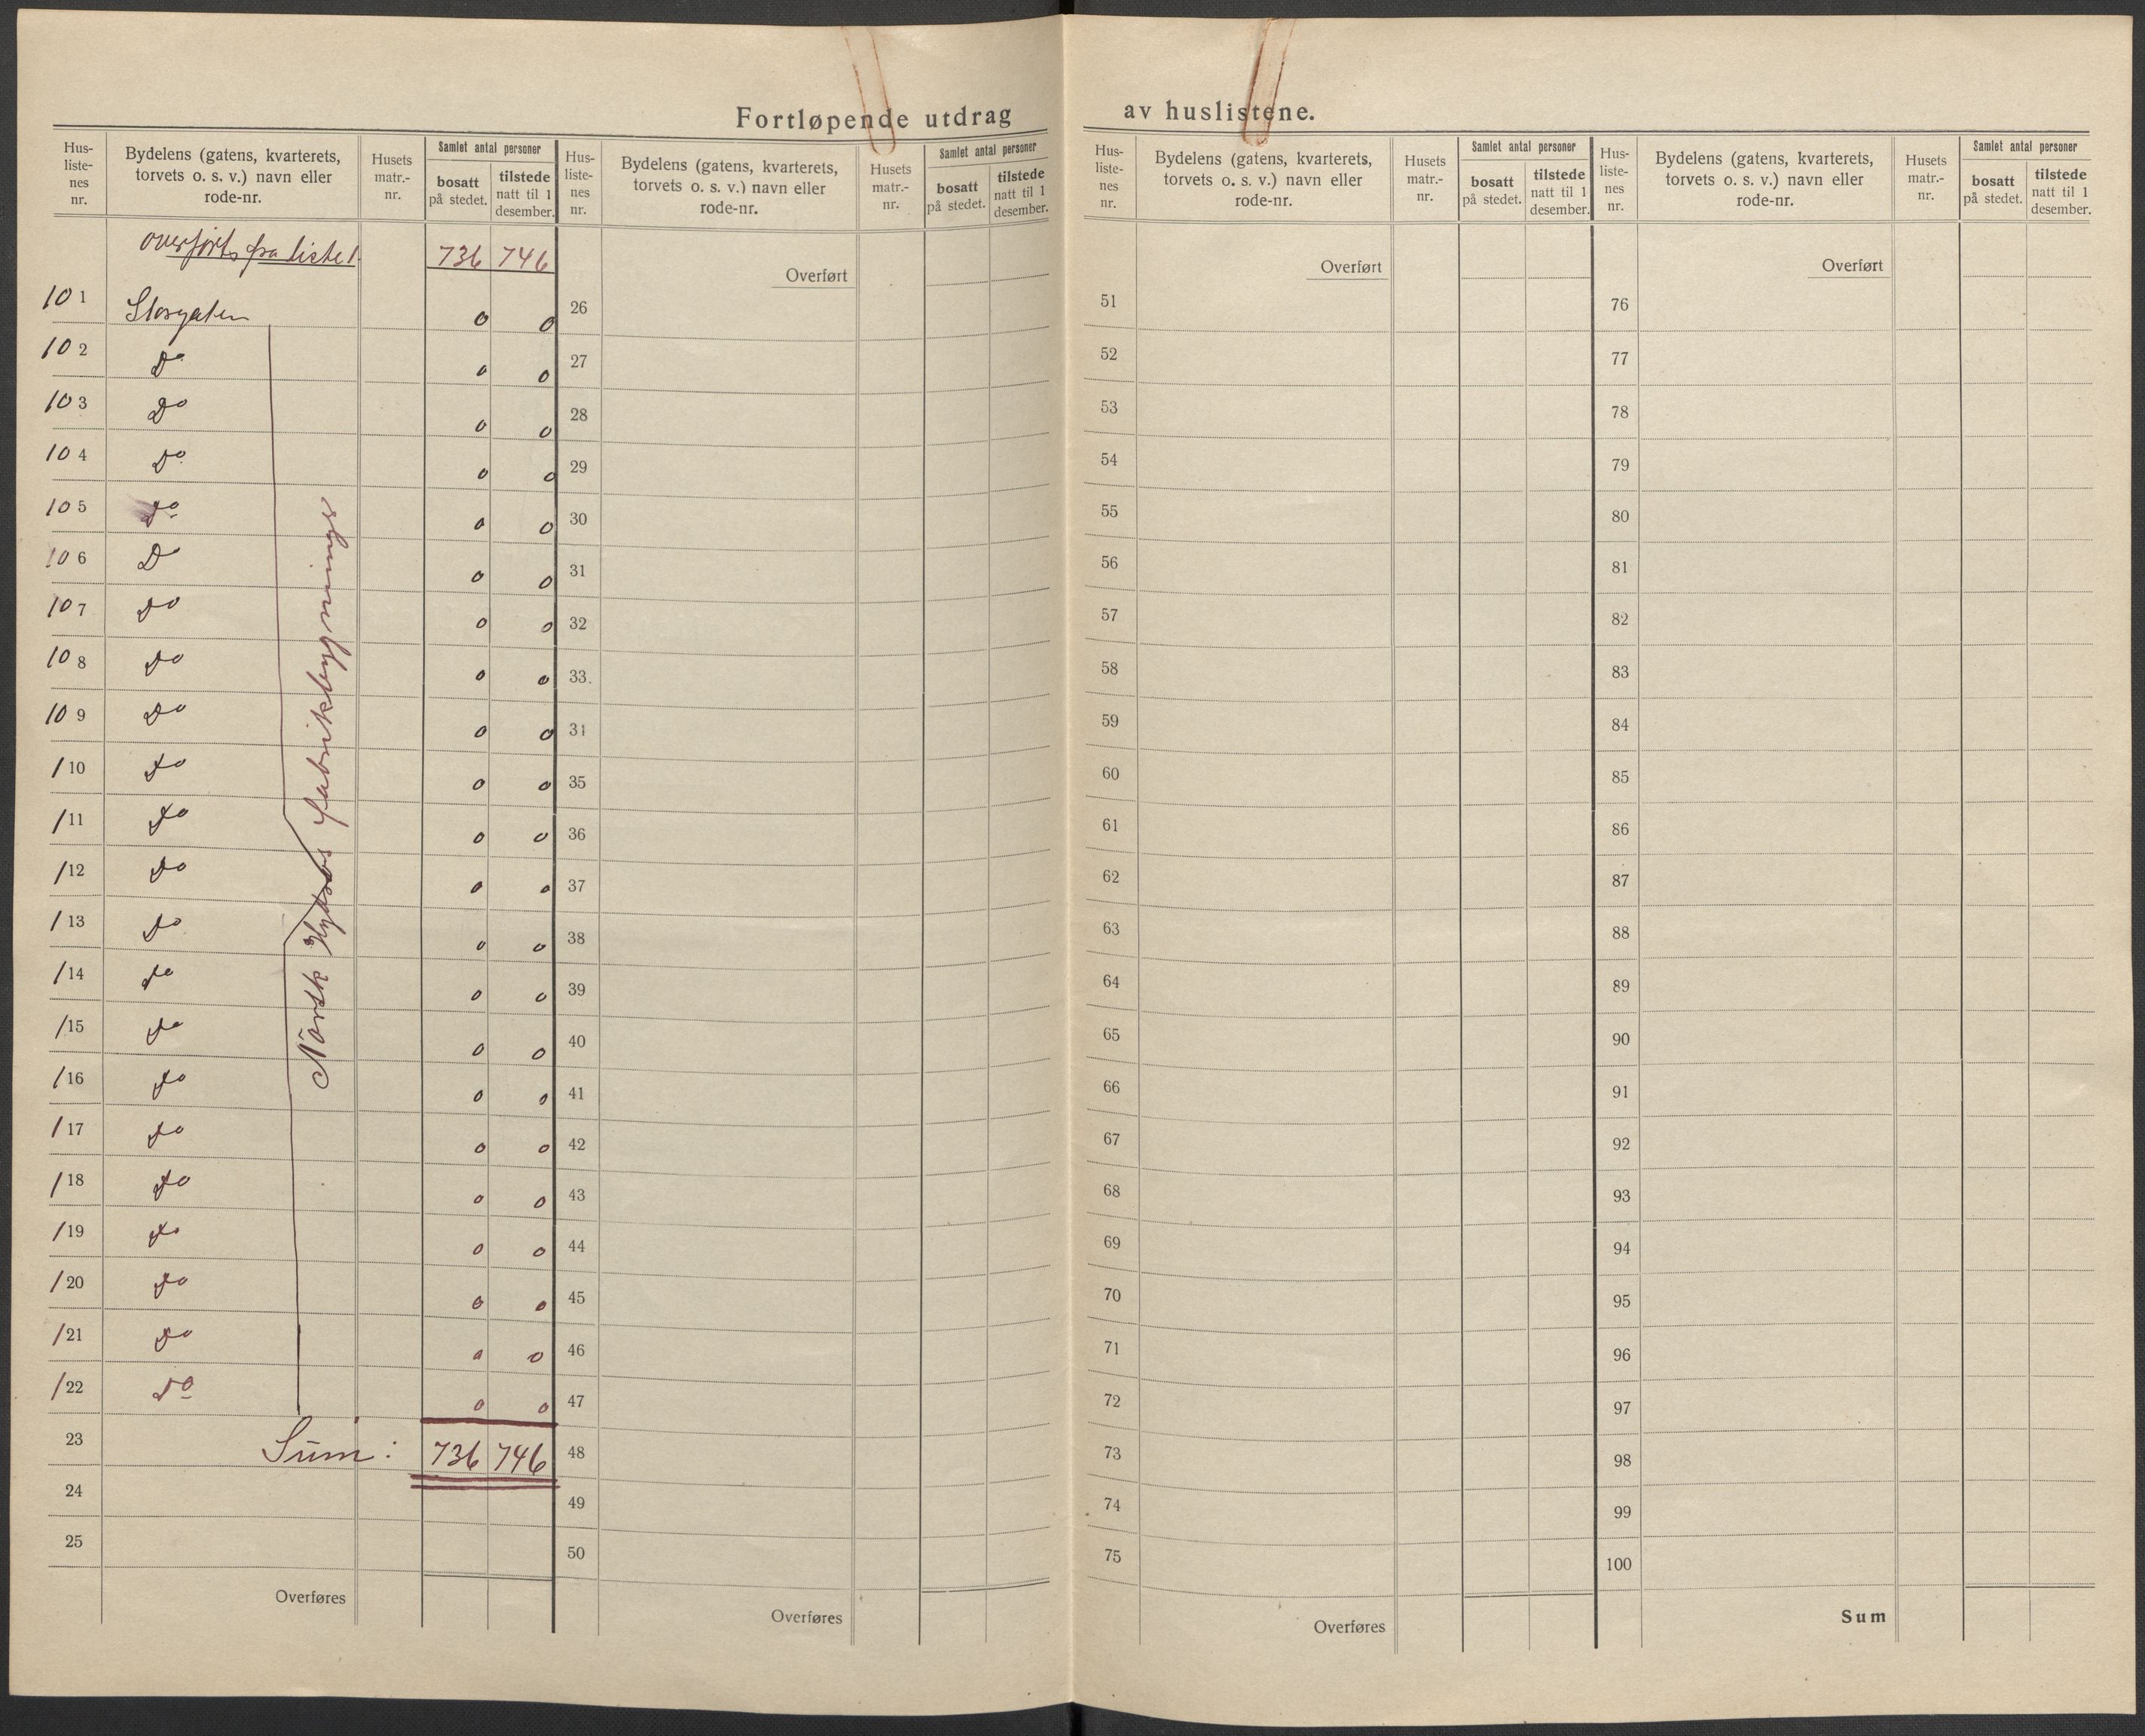 Fortløpende utdrag av huslistene.
Hus- liste- nes nr.
Bydelens (gatens, kvarterets, torvets o. s. v.) navn eller rode-nr.
Husets matr.- nr.
Samlet antal personer
bosatt på stedet.
tilstede natt til 1 desember.
Hus- liste- nes nr.
Bydelens (gatens, kvarterets, torvets o. s. v.) navn eller rode-nr.
Husets matr.- nr.
Samlet antal personer
bosatt på stedet.
tilstede natt til 1 desember.
Hus- liste- nes nr.
Bydelens (gatens, kvarterets, torvets o. s. v.) navn eller rode-nr.
Husets matr.- nr.
Samlet antal personer
bosatt på stedet.
tilstede natt til 1 desember.
Hus- liste- nes nr.
Bydelens (gatens, kvarterets, torvets o. s. v.) navn eller rode-nr.
Husets matr.- nr.
Samlet antal personer
bosatt på stedet.
tilstede natt til 1 desember.
overført fra liste 1. 736 746
101 Storgaten 0 0
102 Do 0 0
103 Do 0 0
104 Do 0 0
105 Do 0 0
106 Do 0 0
107 Do 0 0
108 Do 0 0
109 Do 0 0
110 Do 0 0
111 Do 0 0
112 Do 0 0
113 Do 0 0
114 Do 0 0
115 Do 0 0
116 Do 0 0
117 Do 0 0
118 Do 0 0
119 Do 0 0
120 Do 0 0
121 Do 0 0
122 Do 0 0
Norsk Hydros fabrikbygninger
23 Sum: 736 746
24
25
Overføres
Overført
26
27
28
29
30
31
32
33.
34
35
36
37
38
39
40
41
42
43
44
45
46
47
48
49
50
Overføres
Overført
51
52
53
54
55
56
57
58
59
60
61
62
63
64
65
66
67
68
69
70
71
72
73
74
75
Overføres
Overført
76
77
78
79
80
81
82
83
84
85
86
87
88
89
90
91
92
93
94
95
96
97
98
99
100
Sum